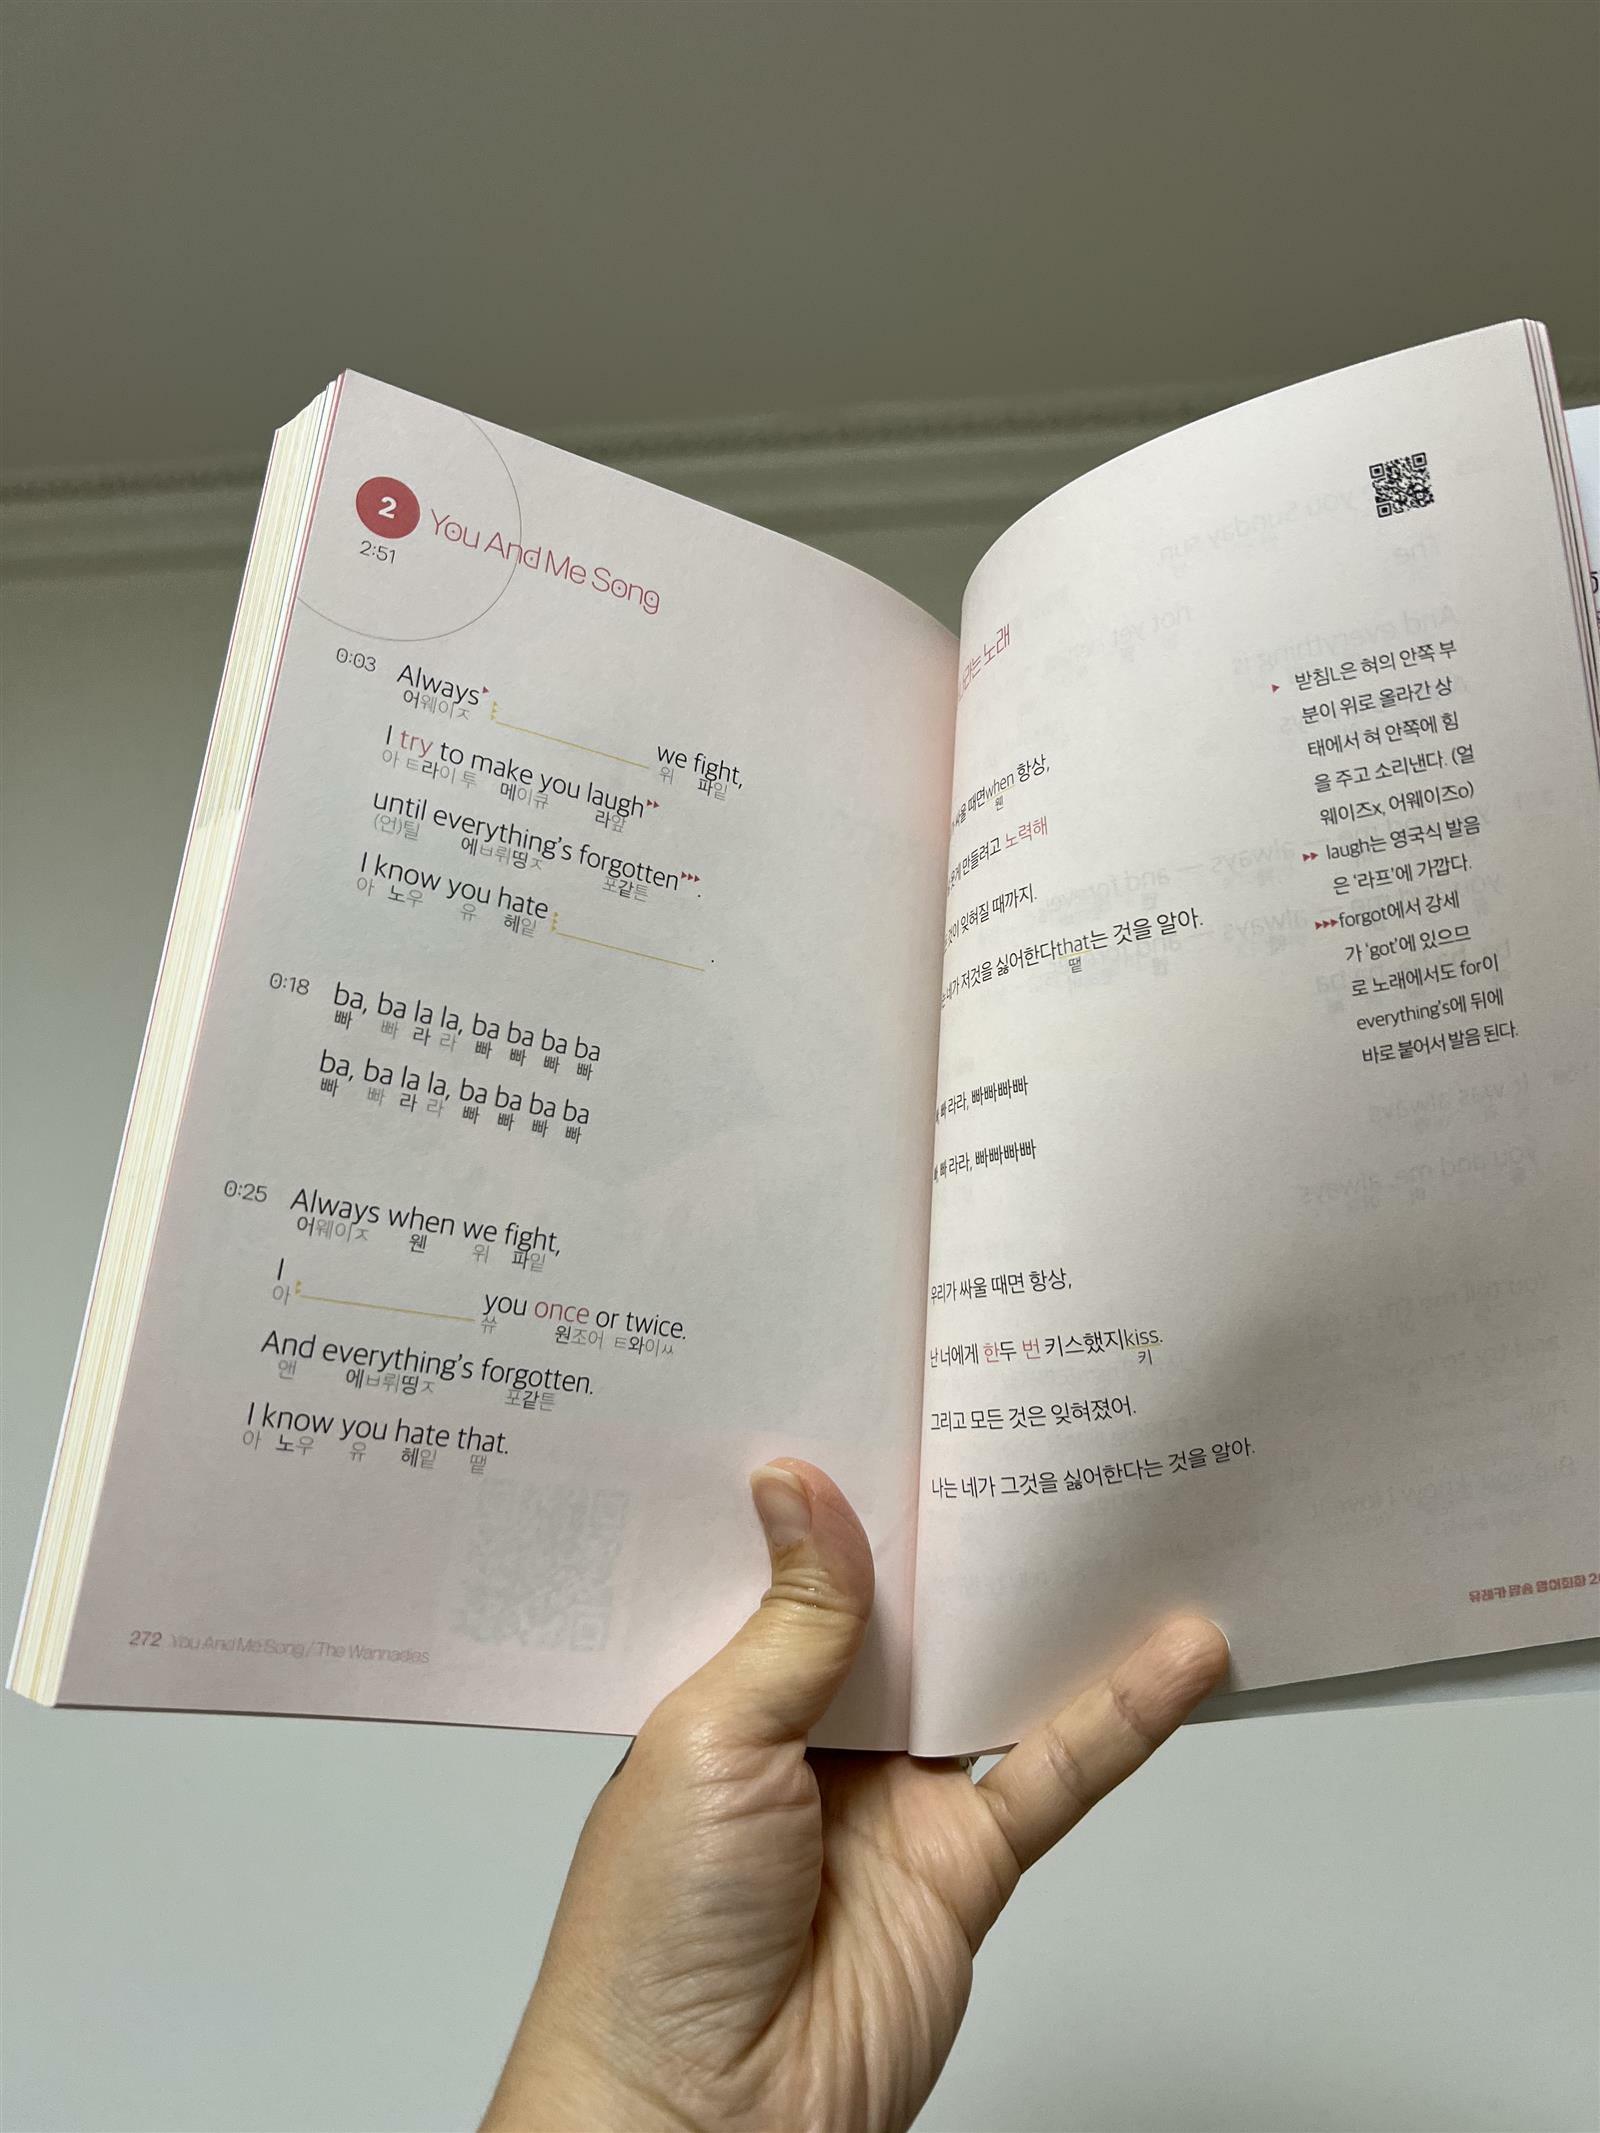 2
You And Me Song
2:51
0:03 Always▸ we fight,
어웨이ㅈ 위 파잍
I try to make you laugh▸▸
아 ㅌ라이 투 메이큐 라앞
until everything's forgotten▸▸▸.
(언)틸 에ㅂ뤼띵ㅈ 포같튼
I know you hate .
아 노우 유 헤잍
0:18 ba, ba la la, ba ba ba ba
빠 빠 라 라 빠 빠 빠 빠
ba, ba la la, ba ba ba ba
빠 빠 라 라 빠 빠 빠 빠
0:25 Always when we fight,
어웨이ㅈ 웬 위 파잍
I you once or twice.
아 쓔 원조어 ㅌ와이ㅆ
And everything's forgotten.
앤 에ㅂ뤼띵ㅈ 포같튼
I know you hate that.
아 노우 유 헤잍 땥
272 You And Me Song / The Wannadies
노래
싸울 때면when 항상,
웬
만들려고 노력해
것이 잊혀질 때까지.
네가 저것을 싫어한다that는 것을 알아.
땥
빠 라라, 빠빠빠빠
빠 라라, 빠빠빠빠
우리가 싸울 때면 항상,
난 너에게 한두 번 키스했지kiss.
키
그리고 모든 것은 잊혀졌어.
나는 네가 그것을 싫어한다는 것을 알아.
▸ 받침L은 혀의 안쪽 부
분이 위로 올라간 상
태에서 혀 안쪽에 힘
을 주고 소리낸다. (얼
웨이즈x, 어웨이즈o)
▸▸ laugh는 영국식 발음
은 '라프'에 가깝다.
▸▸▸forgot에서 강세
가 'got'에 있으므
로 노래에서도 for이
everything's에 뒤에
바로 붙어서 발음 된다.
유레카 팝송 영어회화